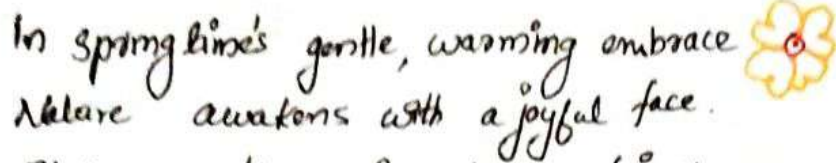 In springtime's gentle, warming embrace
Nature awakens with a joyful face.